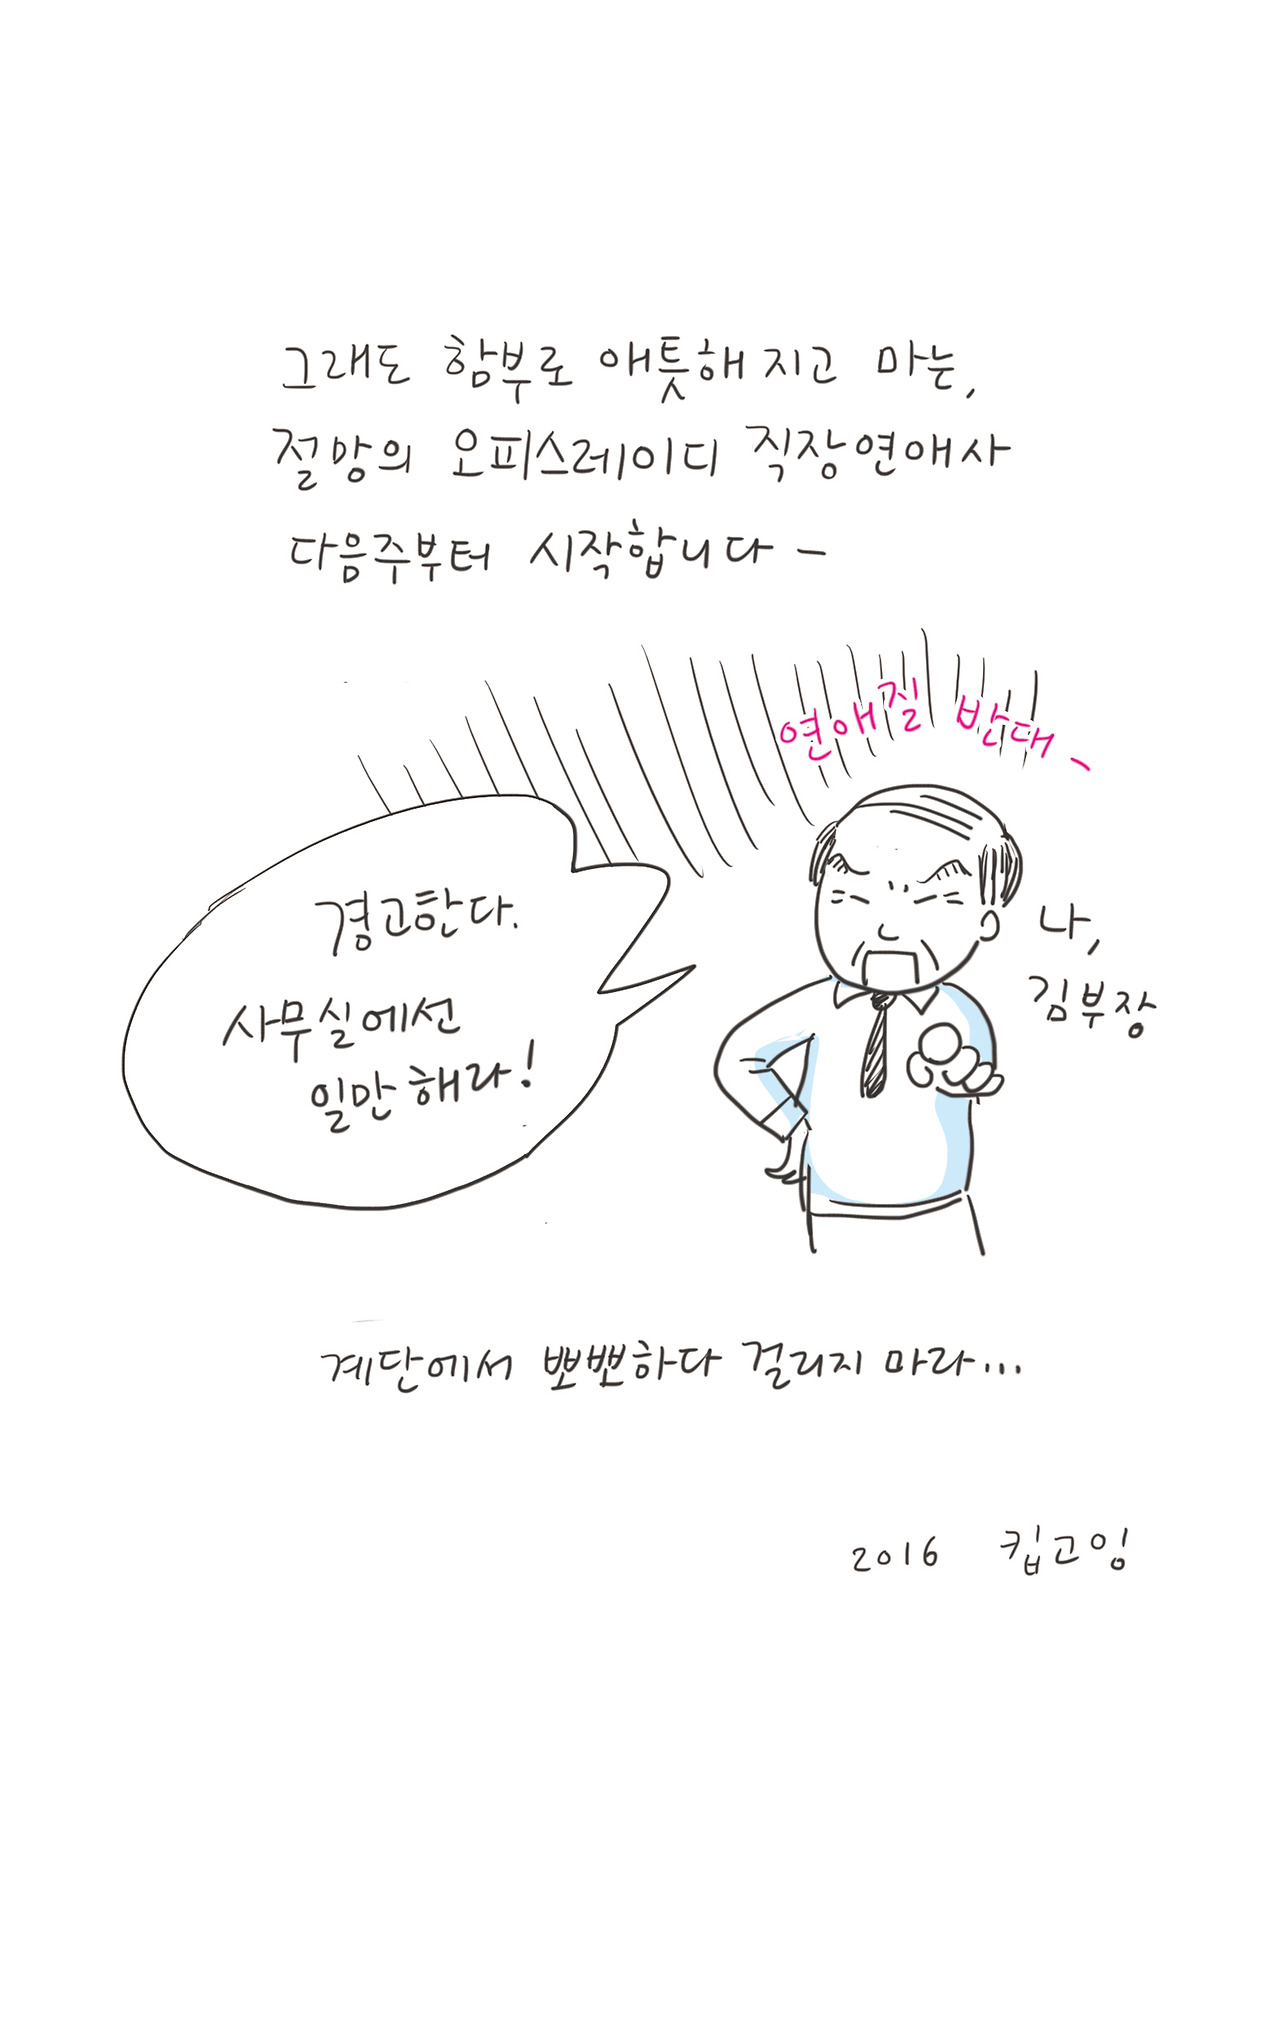 그래도 함부로 애틋해지고 마는,
절망의 오피스레이디 직장연애사
다음주부터 시작합니다 -
연애질 반대 -
경고한다.
사무실에선
일만해라!
나,
김부장
계단에서 뽀뽀하다 걸리지 마라...
2016 킵고잉